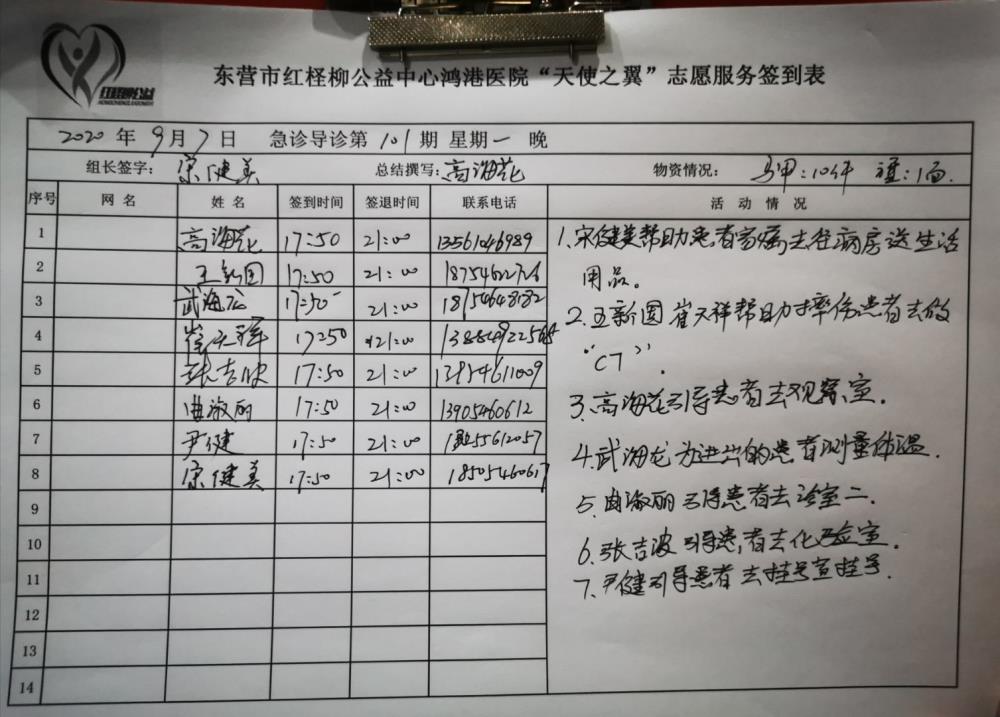 红柽柳公益
东营市红柽柳公益中心鸿港医院“天使之翼”志愿服务签到表
2020年9月7日 急诊导诊第101期 星期一 晚
组长签字：宋健美 总结撰写：高海花 物资情况： 马甲：10件 :1面.
序号 网名 姓名 签到时间 签退时间 联系电话 活动情况
1 高海花 17:50 21:00 13561046989
2 王新国 17:50 21:00
3 武海龙 17:50 21:00 18754648182
4 崔天祥 17:50 21:00
5 张吉波 17:50 21:00
6 曲淑丽 17:50 21:00 13905460612
7 尹健 17:50 21:00
8 宋健美 17:50 21:00 18505460617
9
10
11
12
13
14
1.宋健美帮助患者家属去住病房送生活
用品。
2.王新国崔天祥帮助摔伤患者去做
“CT”.
3.高海花引导患者去观察室.
4.武海龙为进出的患者测量体温.
5.曲淑丽引导患者去诊室二.
6.张吉波引导患者去化验室.
7.尹健引导患者去挂号室挂号.